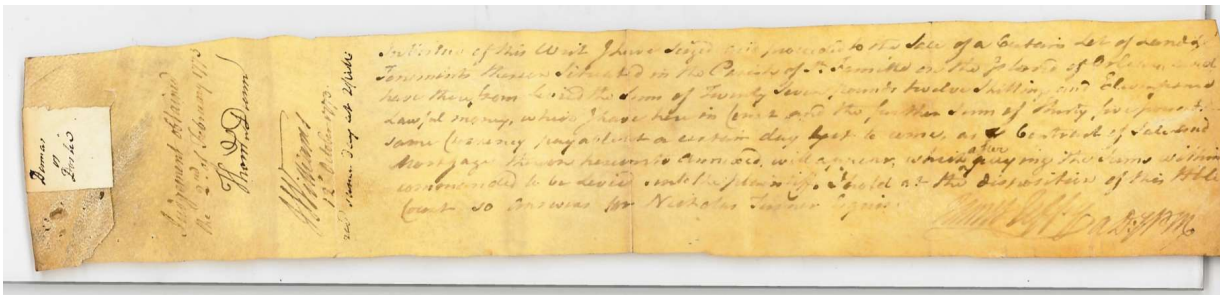 Dumas
vs
Judgment obtained
the 2nd of February 1773
Williams
12th October 1773
red same day at
In Virtue of this Writ I have Seized and proceeded to the Sale of a Certain Lot of Land &
Tenements thereon Situated in the Parish of St. Famille on the Island of Orleans, and
have there from levied the Sum of Twenty Seven pounds twelve Shillings and Eleven pence
Lawful money, which I have here in Court and the further Sum of Thirty five pounds
same Currency payable at a certain day yet to come, as a Contract of Sale and
Mortgage thereon hereunto annexed, will appear, which after paying the Sums within
commanded to be levied unto the plaintiff, I hold at the disposition of this Hble
Court so Answers for Nicholas Turner Esquire